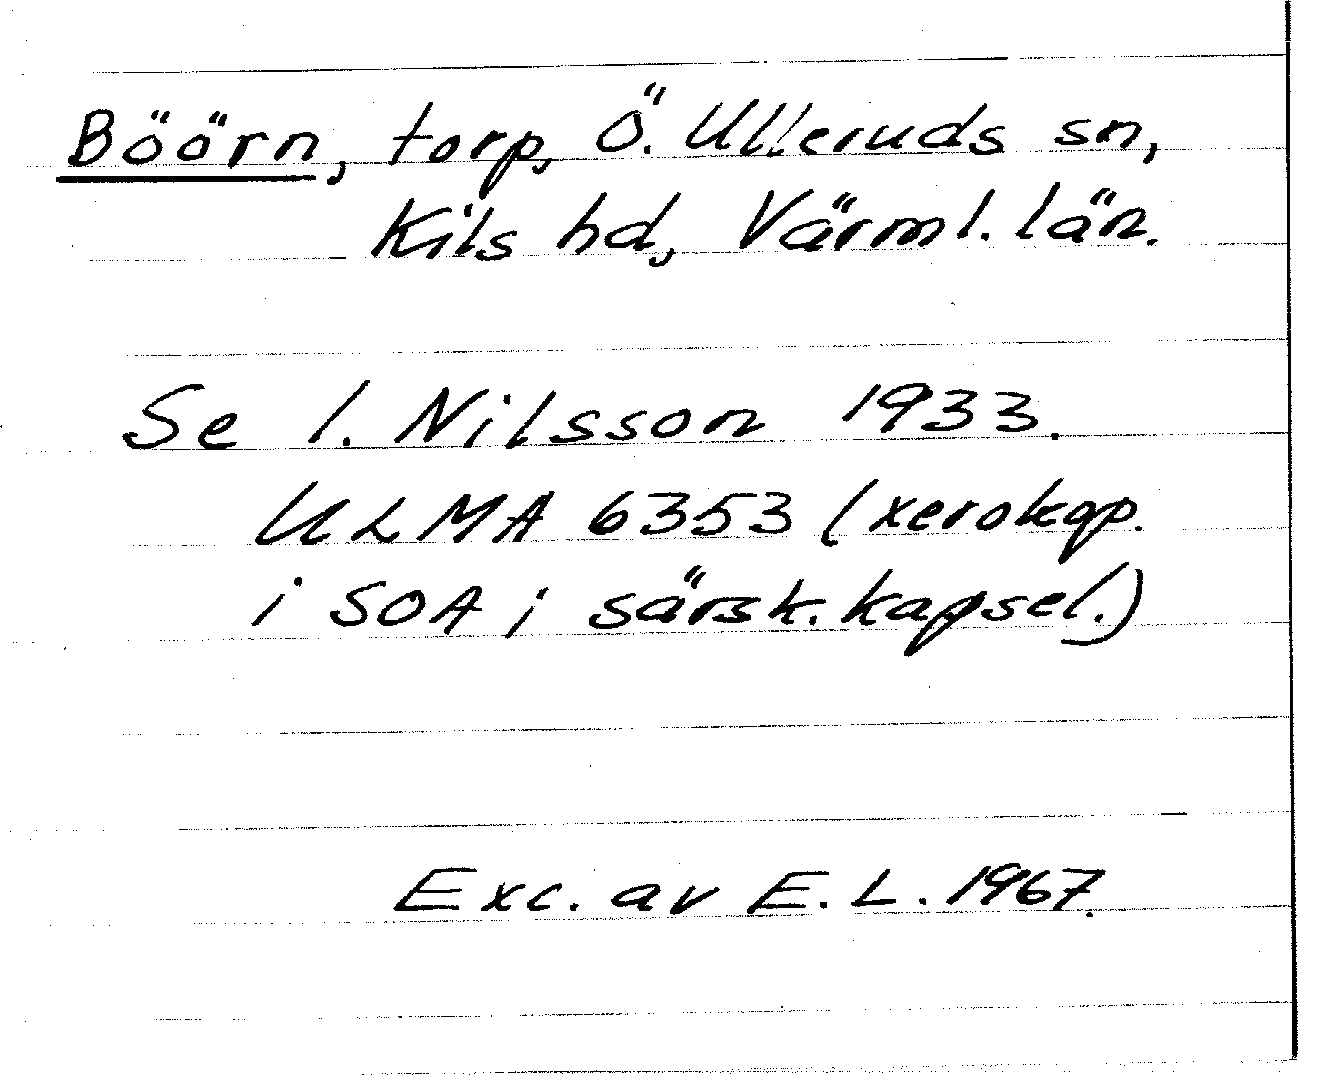 Böörn, torp, Ö. Ulleruds sn,
Kils hd, Värml. län.
Se I. Nilsson 1933.
ULMA 6353 (xerokop.
i SOA i särsk. kapsel.)
Exc. av E. L. 1967.